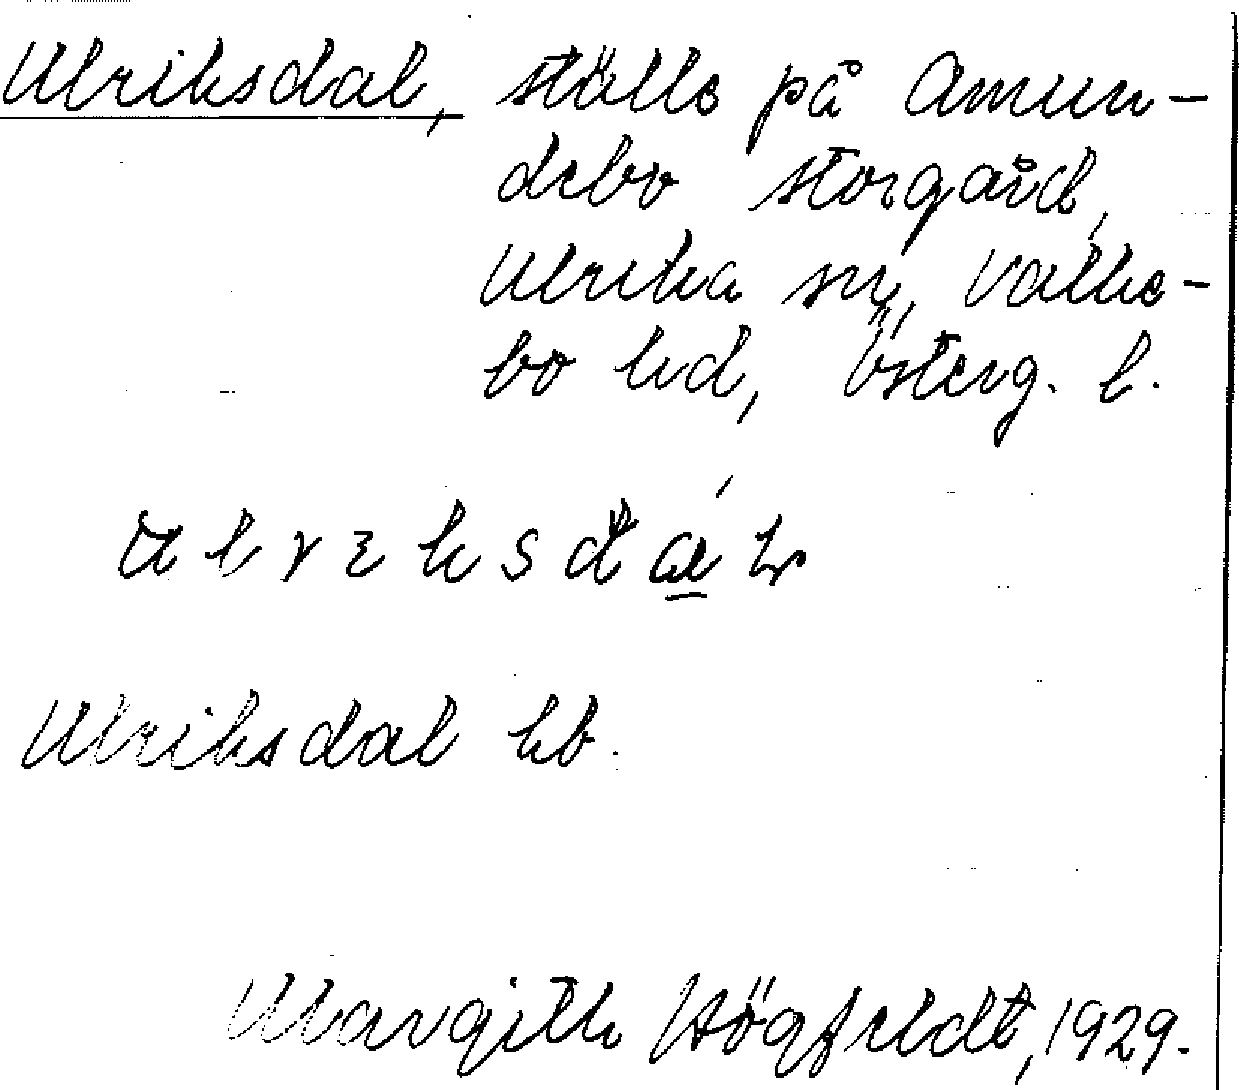 Ulriksdal, ställe på Amun-
debo storgård,
Ulrika sn, Valke-
bo hd, Österg. l.
Ulriksdal kb.
Margith Högfeldt, 1929.